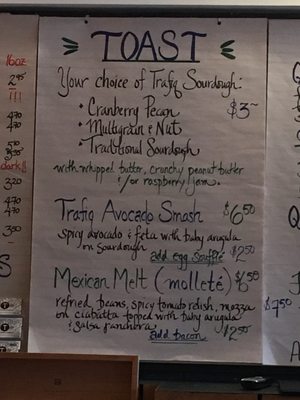 TOAST
Your choice of Trafiq Sourdough:
• Cranberry Pecan $3
• Multigrain & Nut
• Traditional Sourdough
with whipped butter, crunchy peanut butter
&/or raspberry jam.
Trafiq Avocado Smash $6.50
spicy avocado & feta with baby arugula
on sourdough
add egg soufflé $2.50
Mexican Melt (molleté) $6.50
refried beans, spicy tomato relish, mozza
on ciabatta topped with baby arugula
& salsa
add bacon $2.50
16oz
2.95
4.70
4.70
dark!!
3.20
4.70
4.70
3.50
$7.50